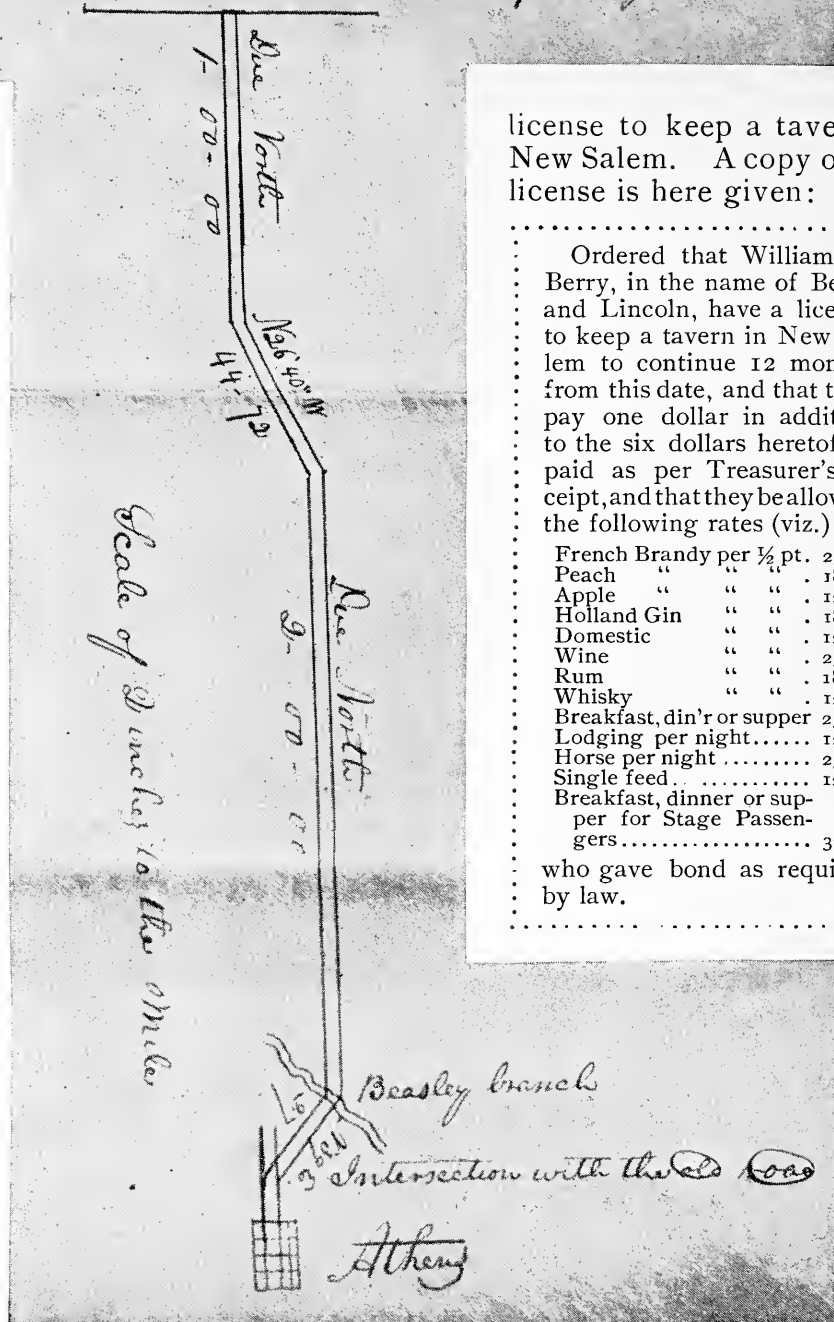 Due North
1- 00- 00
N26°40" W
44-72
Due North
2- 00- 00
Scale of 2 inches to the Mile
Beasley branch
N39 E
Intersection with the old Road
Athens
license to keep a tave
New Salem. A copy o
license is here given:
Ordered that William
Berry, in the name of Be
and Lincoln, have a lice
to keep a tavern in New
lem to continue 12 mon
from this date, and that t
pay one dollar in addit
to the six dollars heretof
paid as per Treasurer's
ceipt, and that they be allow
the following rates (viz.)
French Brandy per ½ pt. 2
Peach " " " . 18
Apple " " " . 1
Holland Gin " " . 18
Domestic " " . 1
Wine " " . 2
Rum " " . 18
Whisky " " . 1
Breakfast, din'r or supper 2
Lodging per night...... 1
Horse per night ......... 2
Single feed.. ........... 1
Breakfast, dinner or sup-
per for Stage Passen-
gers................... 3
who gave bond as requi
by law.